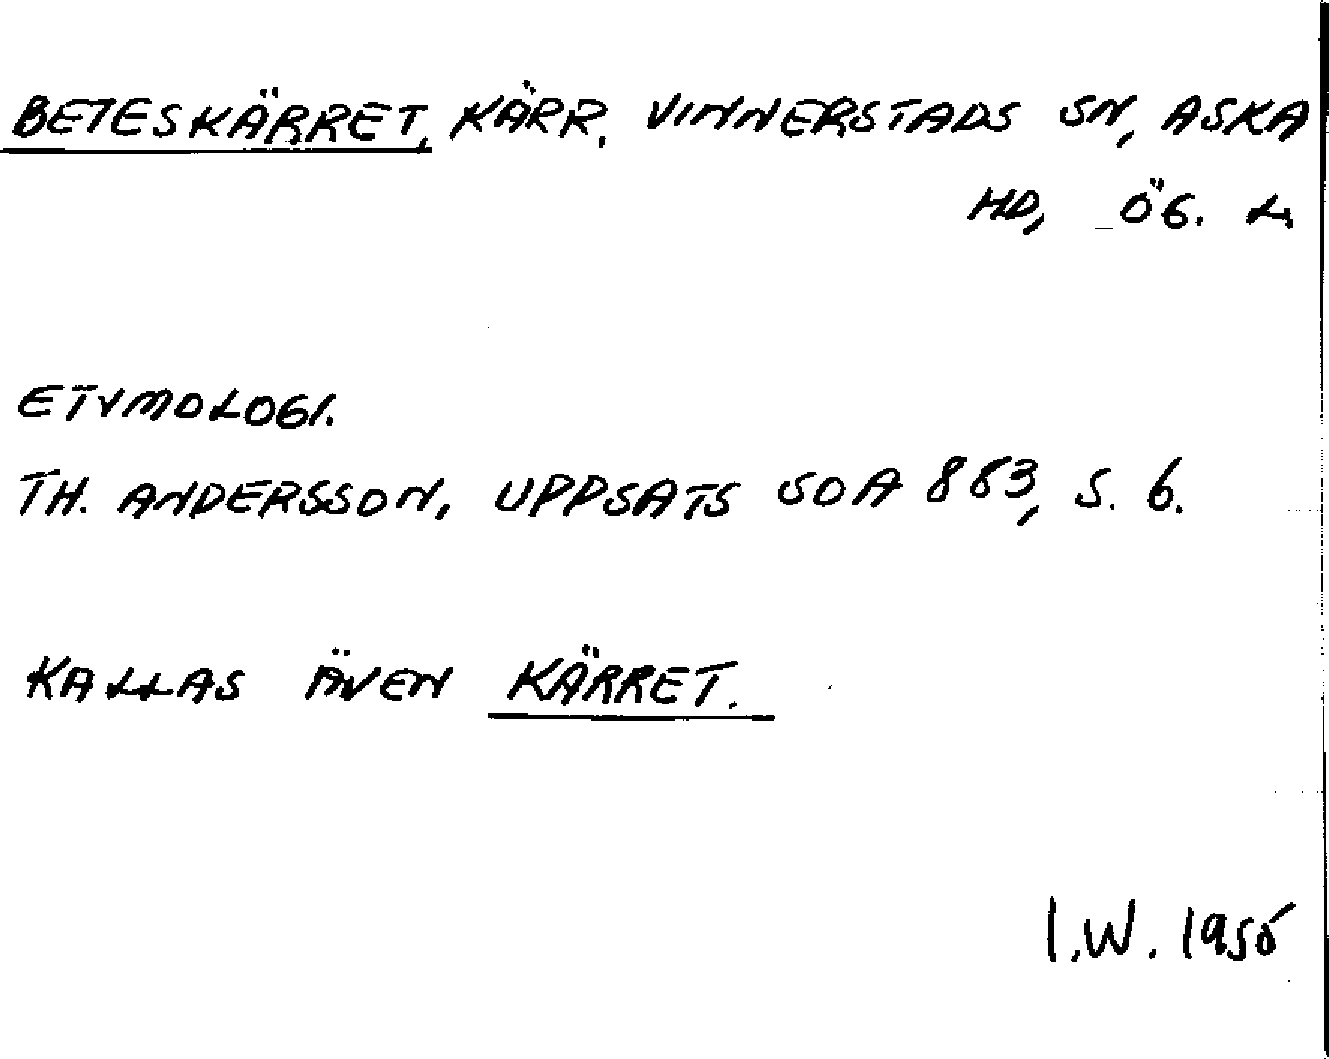 BETESKÄRRET, KÄRR, VINNERSTADS SN, ASKA
HD, ÖG. L.
ETYMOLOGI.
TH. ANDERSSON, UPPSATS SOA 863, S. 6.
KALLAS ÄVEN KÄRRET.
I.W. 1955